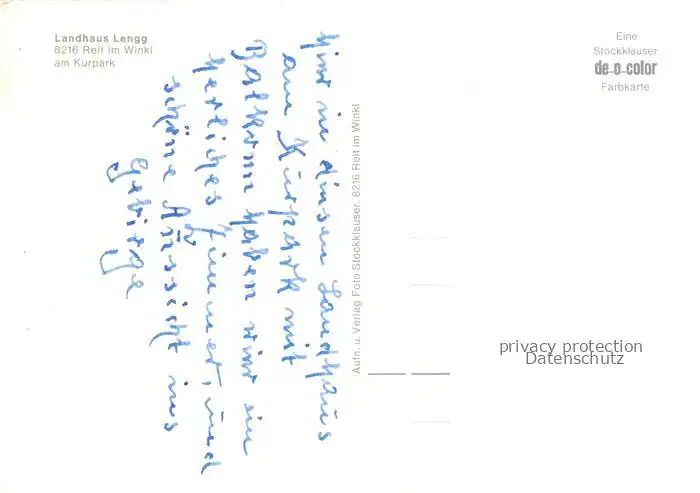 Landhaus Lengg
8216 Reit im Winkl
am Kurpark
Eine
Stockklauser
de-o-color
Farbkarte
Hir in diesen Landhaus
am Kurpark mit
Balkonn haben wir ein
herliches Zimmer, und
schöne Aussicht ins
Gebirge
Aufn. u. Verlag Foto Stockklauser, 8216 Reit im Winkl
privacy protection
Datenschutz